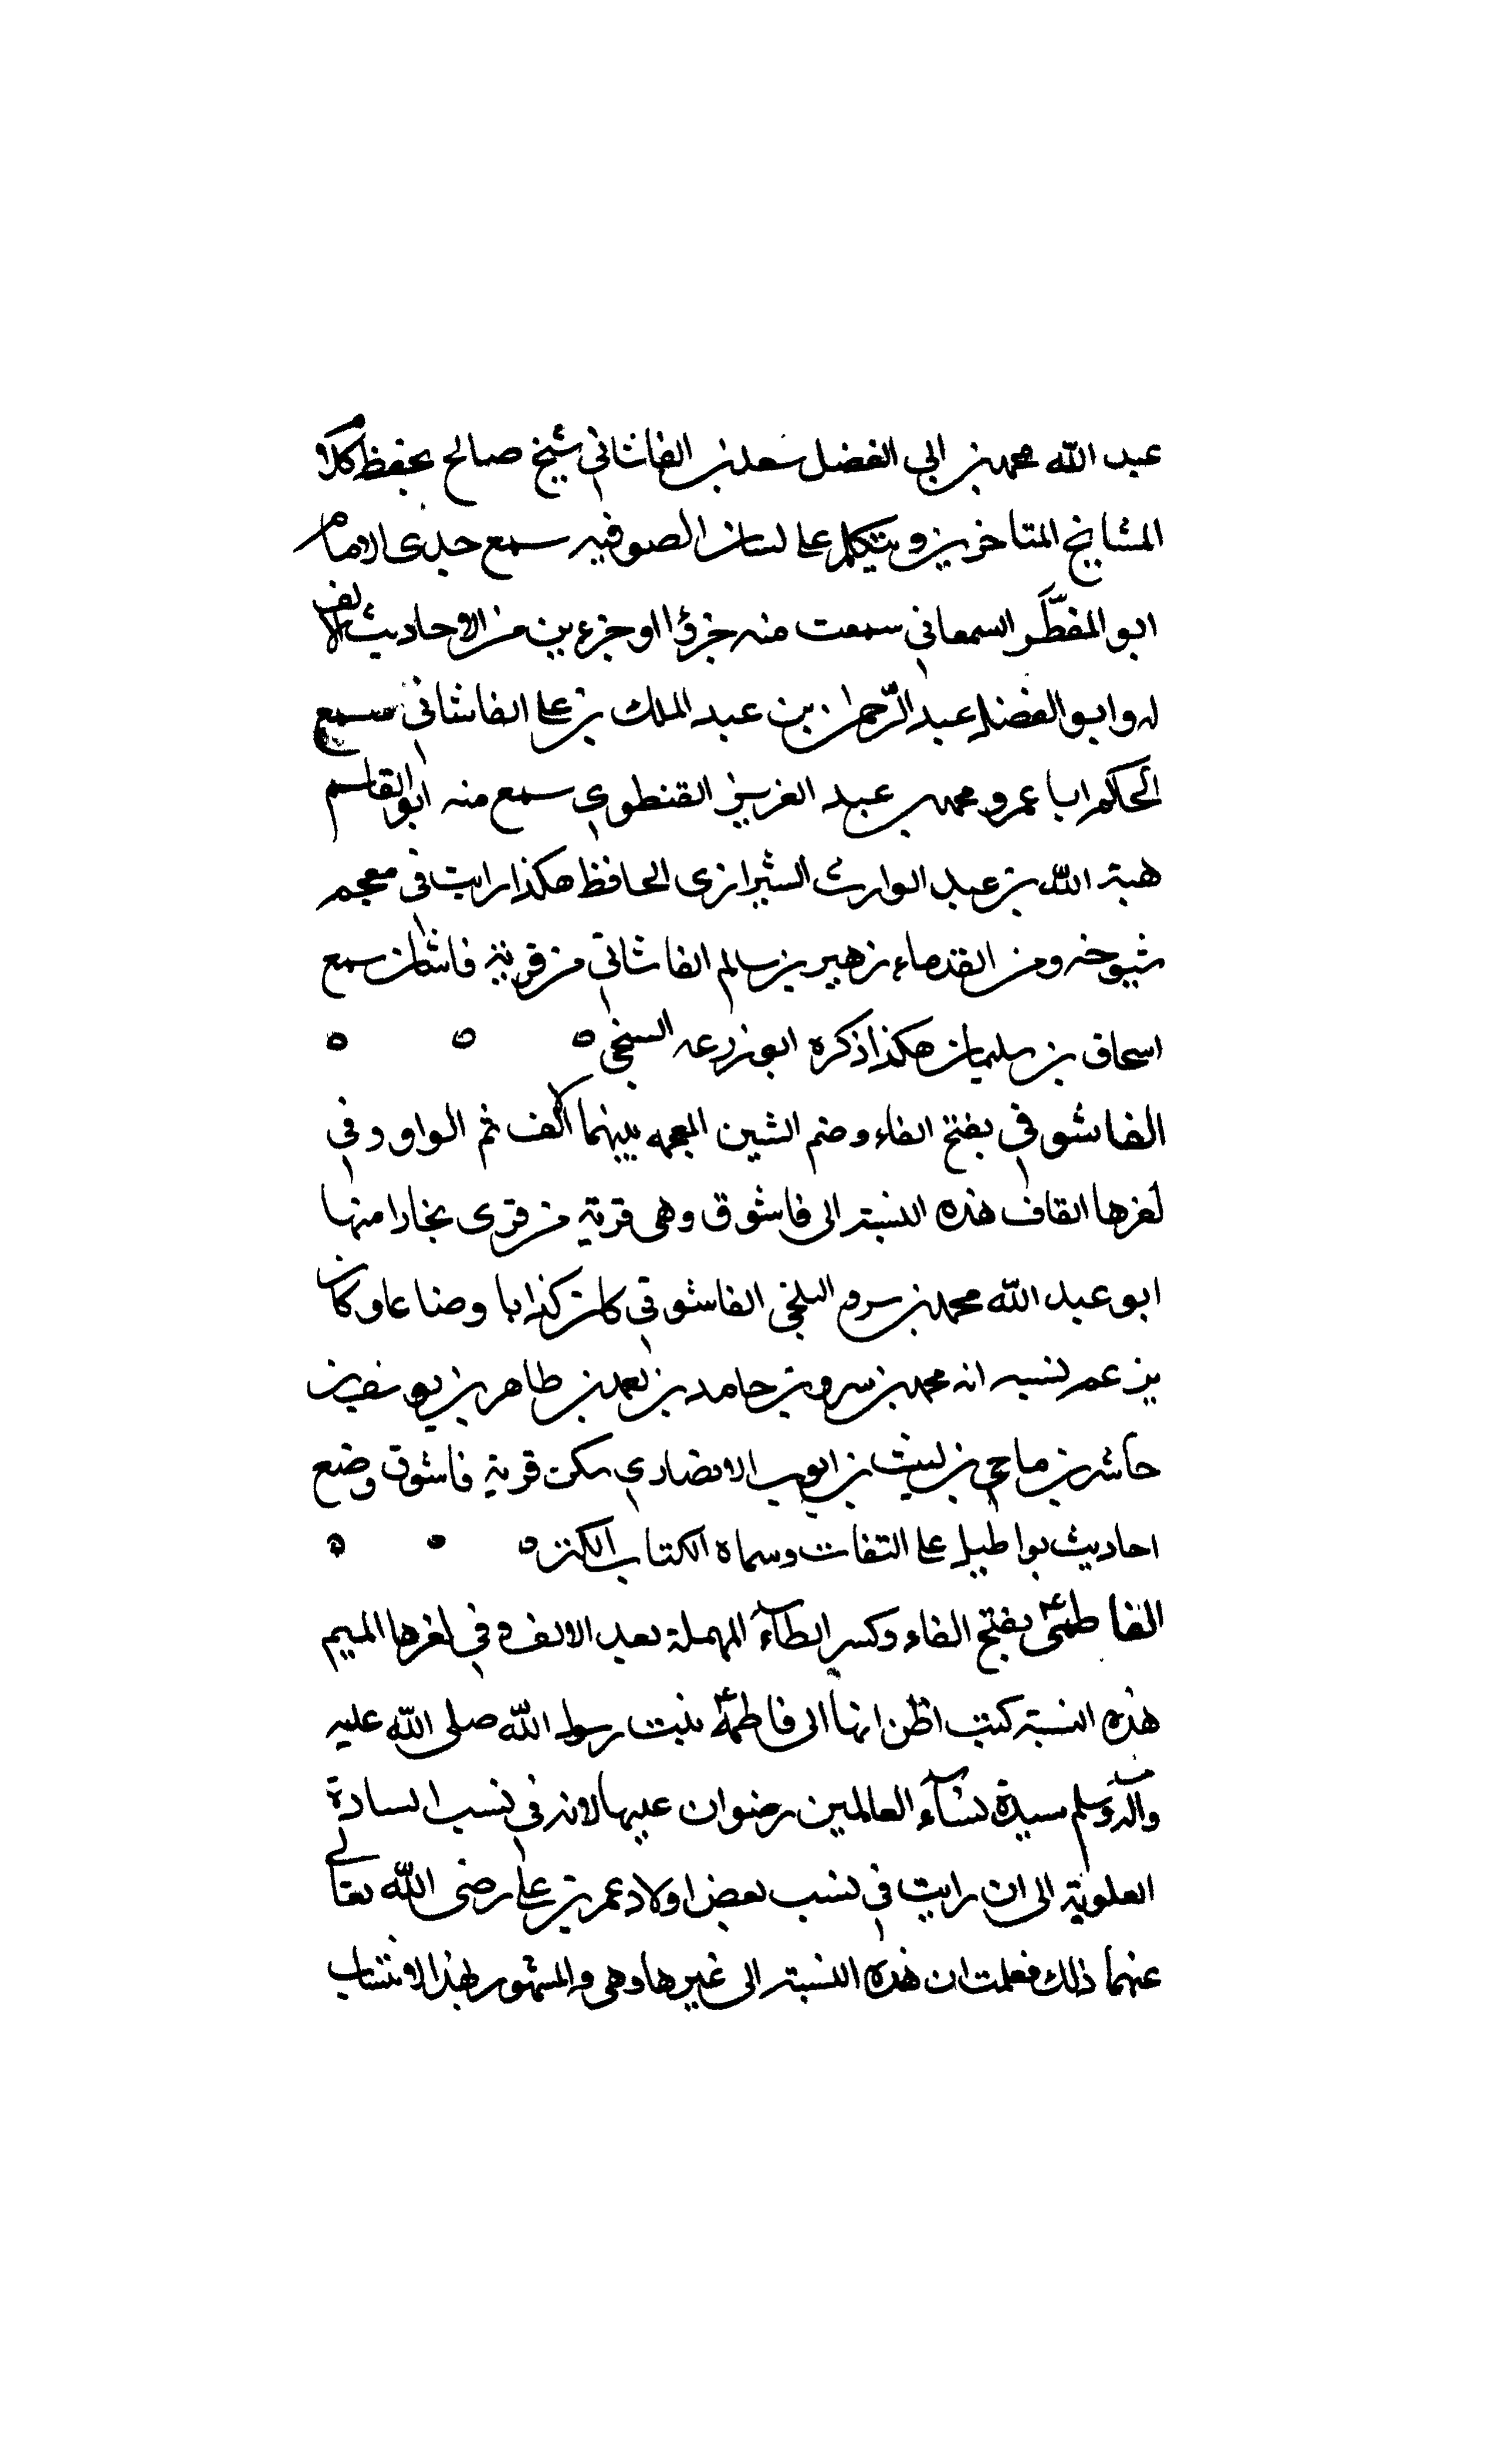 عبد الله محمد بن ابي الفضل سعد بن الفاشاني شيخ صالح يحفظ كلام
المشايخ المتاخرين ويتكلم على لسان الصوفيه سمع جدى الامام
ابو المفظّر السمعاني سمعت منه جزؤا او جزءين من الاحاديث الالف
له وابو الفضل عبد الرّحمن بن عبد الملك بن على الفاشاني سمع
الحاكم ابا عمرو محمد بن عبد العزيز القنطري سمع منه ابو القاسم
هبة الله بن عبد الوارث الشيرازى الحافظ هكذا رايت في معجم
شيوخه ومن القدماء زهير بن سالم الفاشاني من قرية فاشان سمع
اسحاق بن سليمان هكذا ذكره ابو زرعه السنجى ٥ ٥ ٥
الفاشوقي بفتح الفاء وضم الشين المعجمه بينهما الالف ثم الواو وفي
اخرها القاف هذه النسبة الى فاشوق وهى قرية من قرى بخارا منها
ابو عبد الله محمد بن سرو البلخى الفاشوقي كان كذابا وضاعا وكان
يزعم لنسبه انه محمد بن سرو بن حامد بن بن طاهر بن يوسف بن
حاشد بن ماحي بن ليث بن ايوب الانصاري سكن قرية فاشوق وضع
احاديث بواطيل على الثقات وسماه الكتاب الكنز ٥ ٥ ٥
الفاطمى بفتح الفاء وكسر الطآء المهملة بعد الالف وفي اخرها الميم
هذه النسبة كنت اظن انها الى فاطمة بنت رسول الله صلى الله عليه
وآله وسلم سيدة نسآء العالمين رضوان عليها لانه في نسب السادة
العلوية الى ان رايت في نسب بعض اولاد عمر بن على رضى الله تعالى
عنهما ذلك فعلمت ان هذه النسبة الى غيرها وهى والمشهور بهذا الانتساب